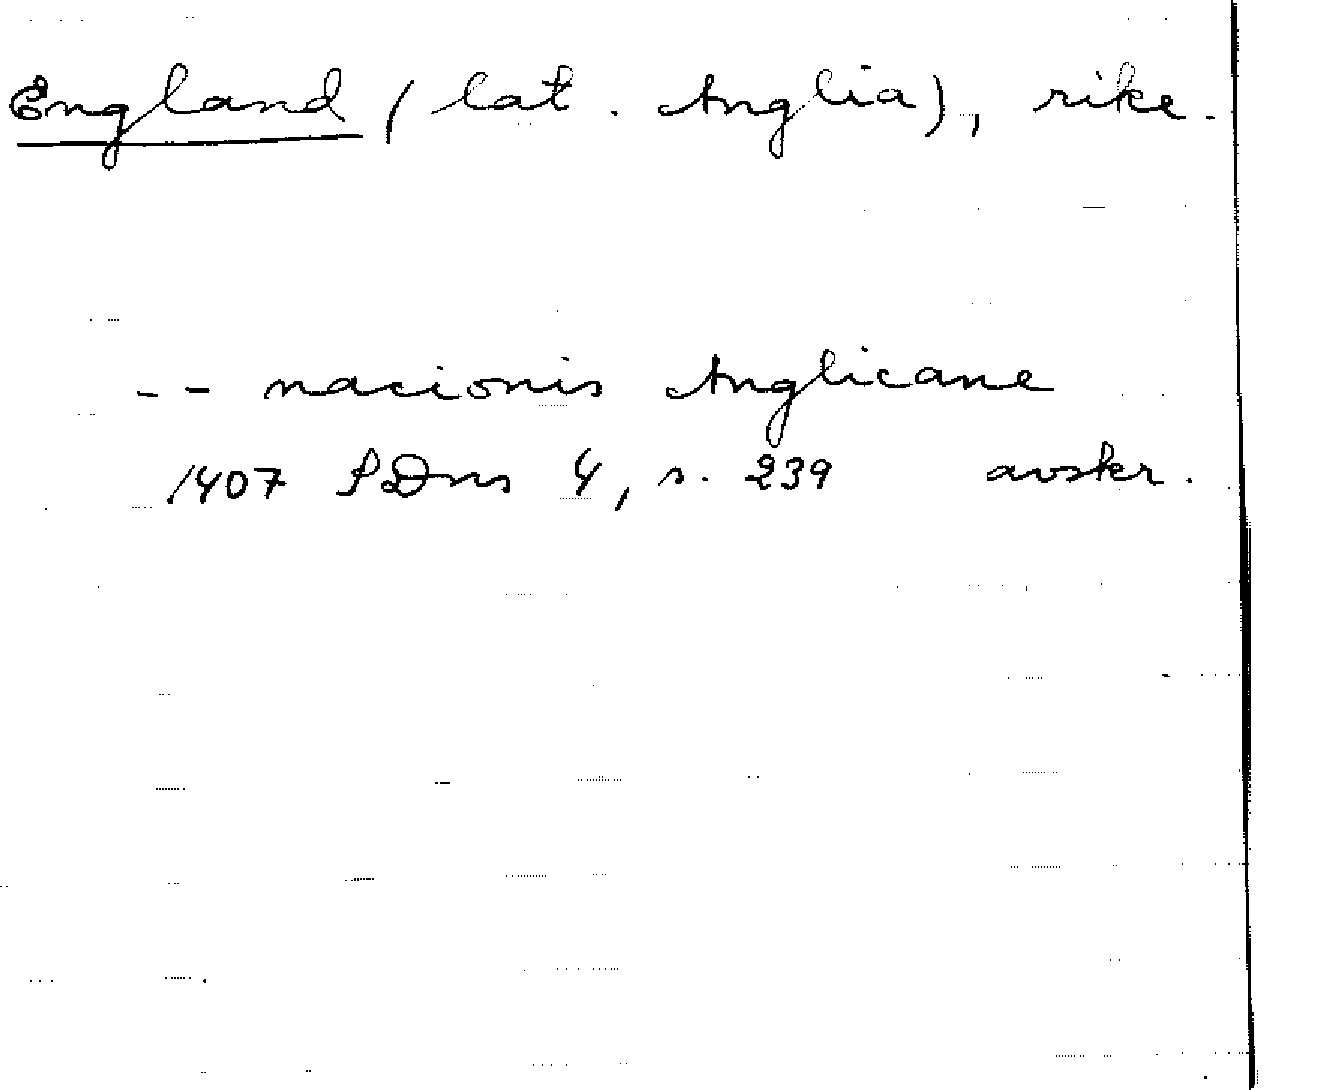 England (lat. Anglia), rike.
-- nacionis Anglicane
1407 SDns 4, s. 239 avskr.